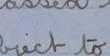 assed
bject to